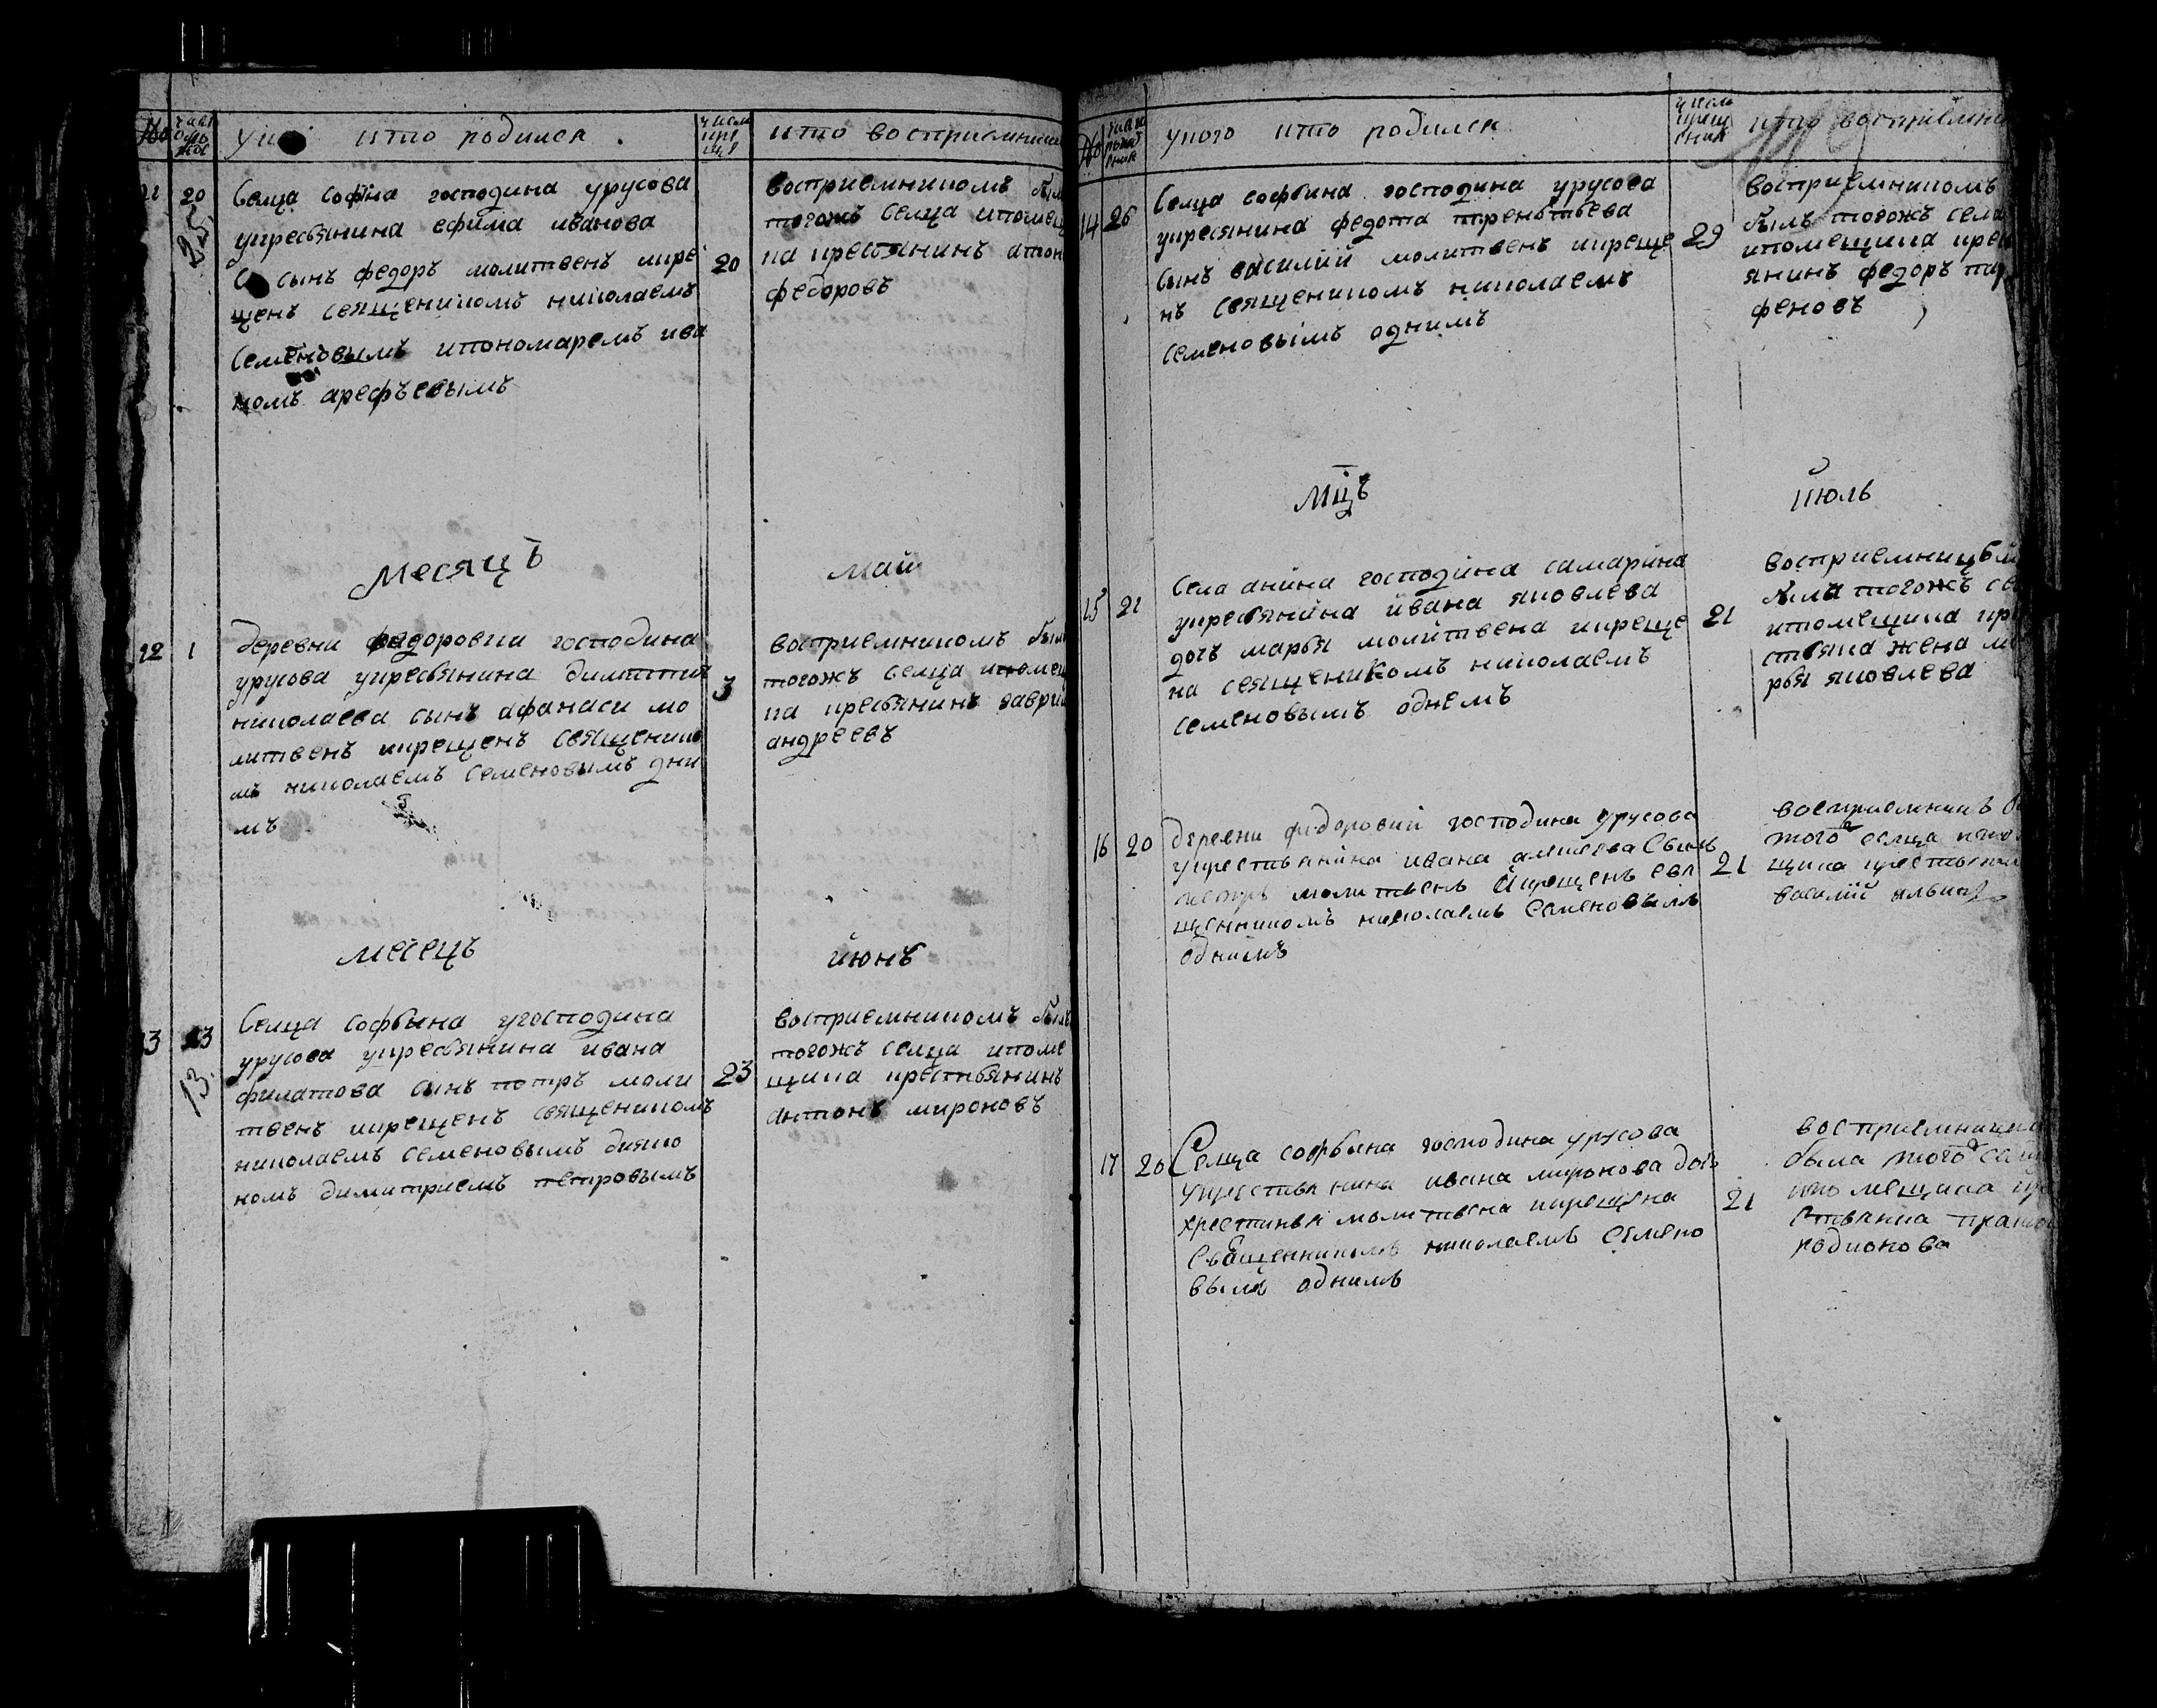 №
число рож
у ко кто родился
число кре ще
кто восприемник
20
25
Селца софiина господина урусова
укресьянина ефима иванова
сынъ федоръ молитвенъ икре
щенъ священикомъ николаемъ
Семеновымъ ипономаремъ ива
номъ арефъевымъ
20
восприемникомъ был
тогожъ селца ипомещ
ка крестянинъ антон
федоровъ
месяцъ
май
12
1
деревни федоровки господина
урусова укресьянина димитти
николаева сынъ афанаси мо
литвенъ икрещенъ священико
мъ николаемъ семеновымъ дни
мъ
3
восприемникомъ был
тогожъ селца ипомещ
ка кресьянинъ гаврил
андреевъ
месецъ
июнъ
13
23
13.
Селца софьина угосподина
урусова укресьянина ивана
филатова сынъ потръ моли
твенъ икрещенъ священикомъ
николаемъ семеновымъ дияко
номъ димитриемъ петровымъ
23
восприемникомъ былъ
тогожъ селца ипоме
щика крестьянинъ
антонъ мироновъ
№
число рожд ения
укого кто родился
число крещ ения
кто восприемни
14
26
Селца софьина господина урусова
укресянина федота терентьева
сынъ василий молитвенъ икреще
нъ священикомъ николаемъ
семеновымъ однимъ
29
восприемникомъ
былъ тогожъ села
ипомещика крес
янинъ федоръ пар
феновъ
мцъ
июль
15
21
Села анина господина самарина
укресьянина ивана яковлева
дочь марья молитвена икреще
на священикомъ николаемъ
семеновымъ однемъ
21
восприемницей
была тогожъ се
ипомещика кре
стьяна жена ма
рья яковлева
16
20
деревни федоровки господина урусова
укрестьянина ивана алексеева Сынъ
петръ молитвенъ икрещенъ свя
щенникомъ николаемъ Семеновымъ
однимъ
21
восприемникъ б
того селца ипом
щика крестьянин
василiй ильинъ
17
20
Селца софьина господина урусова
укрестьянина ивана миронова дочь
хрестинья молитвена икрещена
Священникомъ николаемъ семено
вымъ однимъ
21
восприемницей
была того селц
ипомещика кре
стьянка праско
родионова